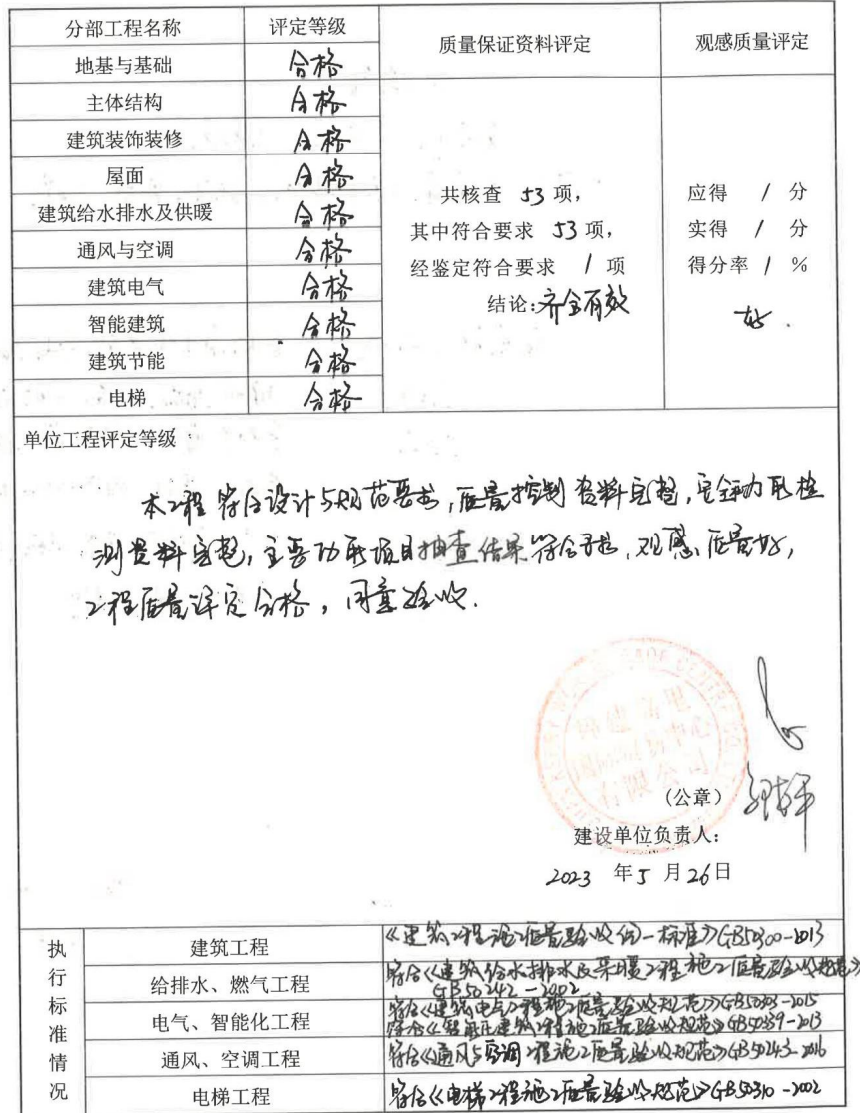 分部工程名称 评定等级 质量保证资料评定 观感质量评定
地基与基础 合格
主体结构 合格
建筑装饰装修 合格
屋面 合格
建筑给水排水及供暖 合格
通风与空调 合格
建筑电气 合格
智能建筑 合格
建筑节能 合格
电梯 合格
共核查 53 项，
其中符合要求 53 项，
经鉴定符合要求 / 项
结论：齐全有效
应得 / 分
实得 / 分
得分率 / %
好.
单位工程评定等级：
本工程符合设计与规范要求，质量控制资料完整，安全功能检
测资料完整，主要功能项目抽查结果符合要求，观感质量好，
工程质量评定合格，同意验收.
(公章)
建设单位负责人：
2023 年 5 月 26 日
执行标准情况
建筑工程 《建筑工程施工质量验收统一标准》GB50300-2013
给排水、燃气工程 符合《建筑给水排水及采暖工程施工质量验收规范》
GB50242-2002
电气、智能化工程 符合《建筑电气工程施工质量验收规范》GB50303-2015
符合《智能建筑工程施工质量验收规范》GB50339-2013
通风、空调工程 符合《通风与空调工程施工质量验收规范》GB50243-2016
电梯工程 符合《电梯工程施工质量验收规范》GB50310-2002